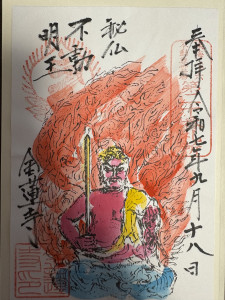 奉拝 令和七年九月十八日
秘仏
不動
明王
金蓮寺